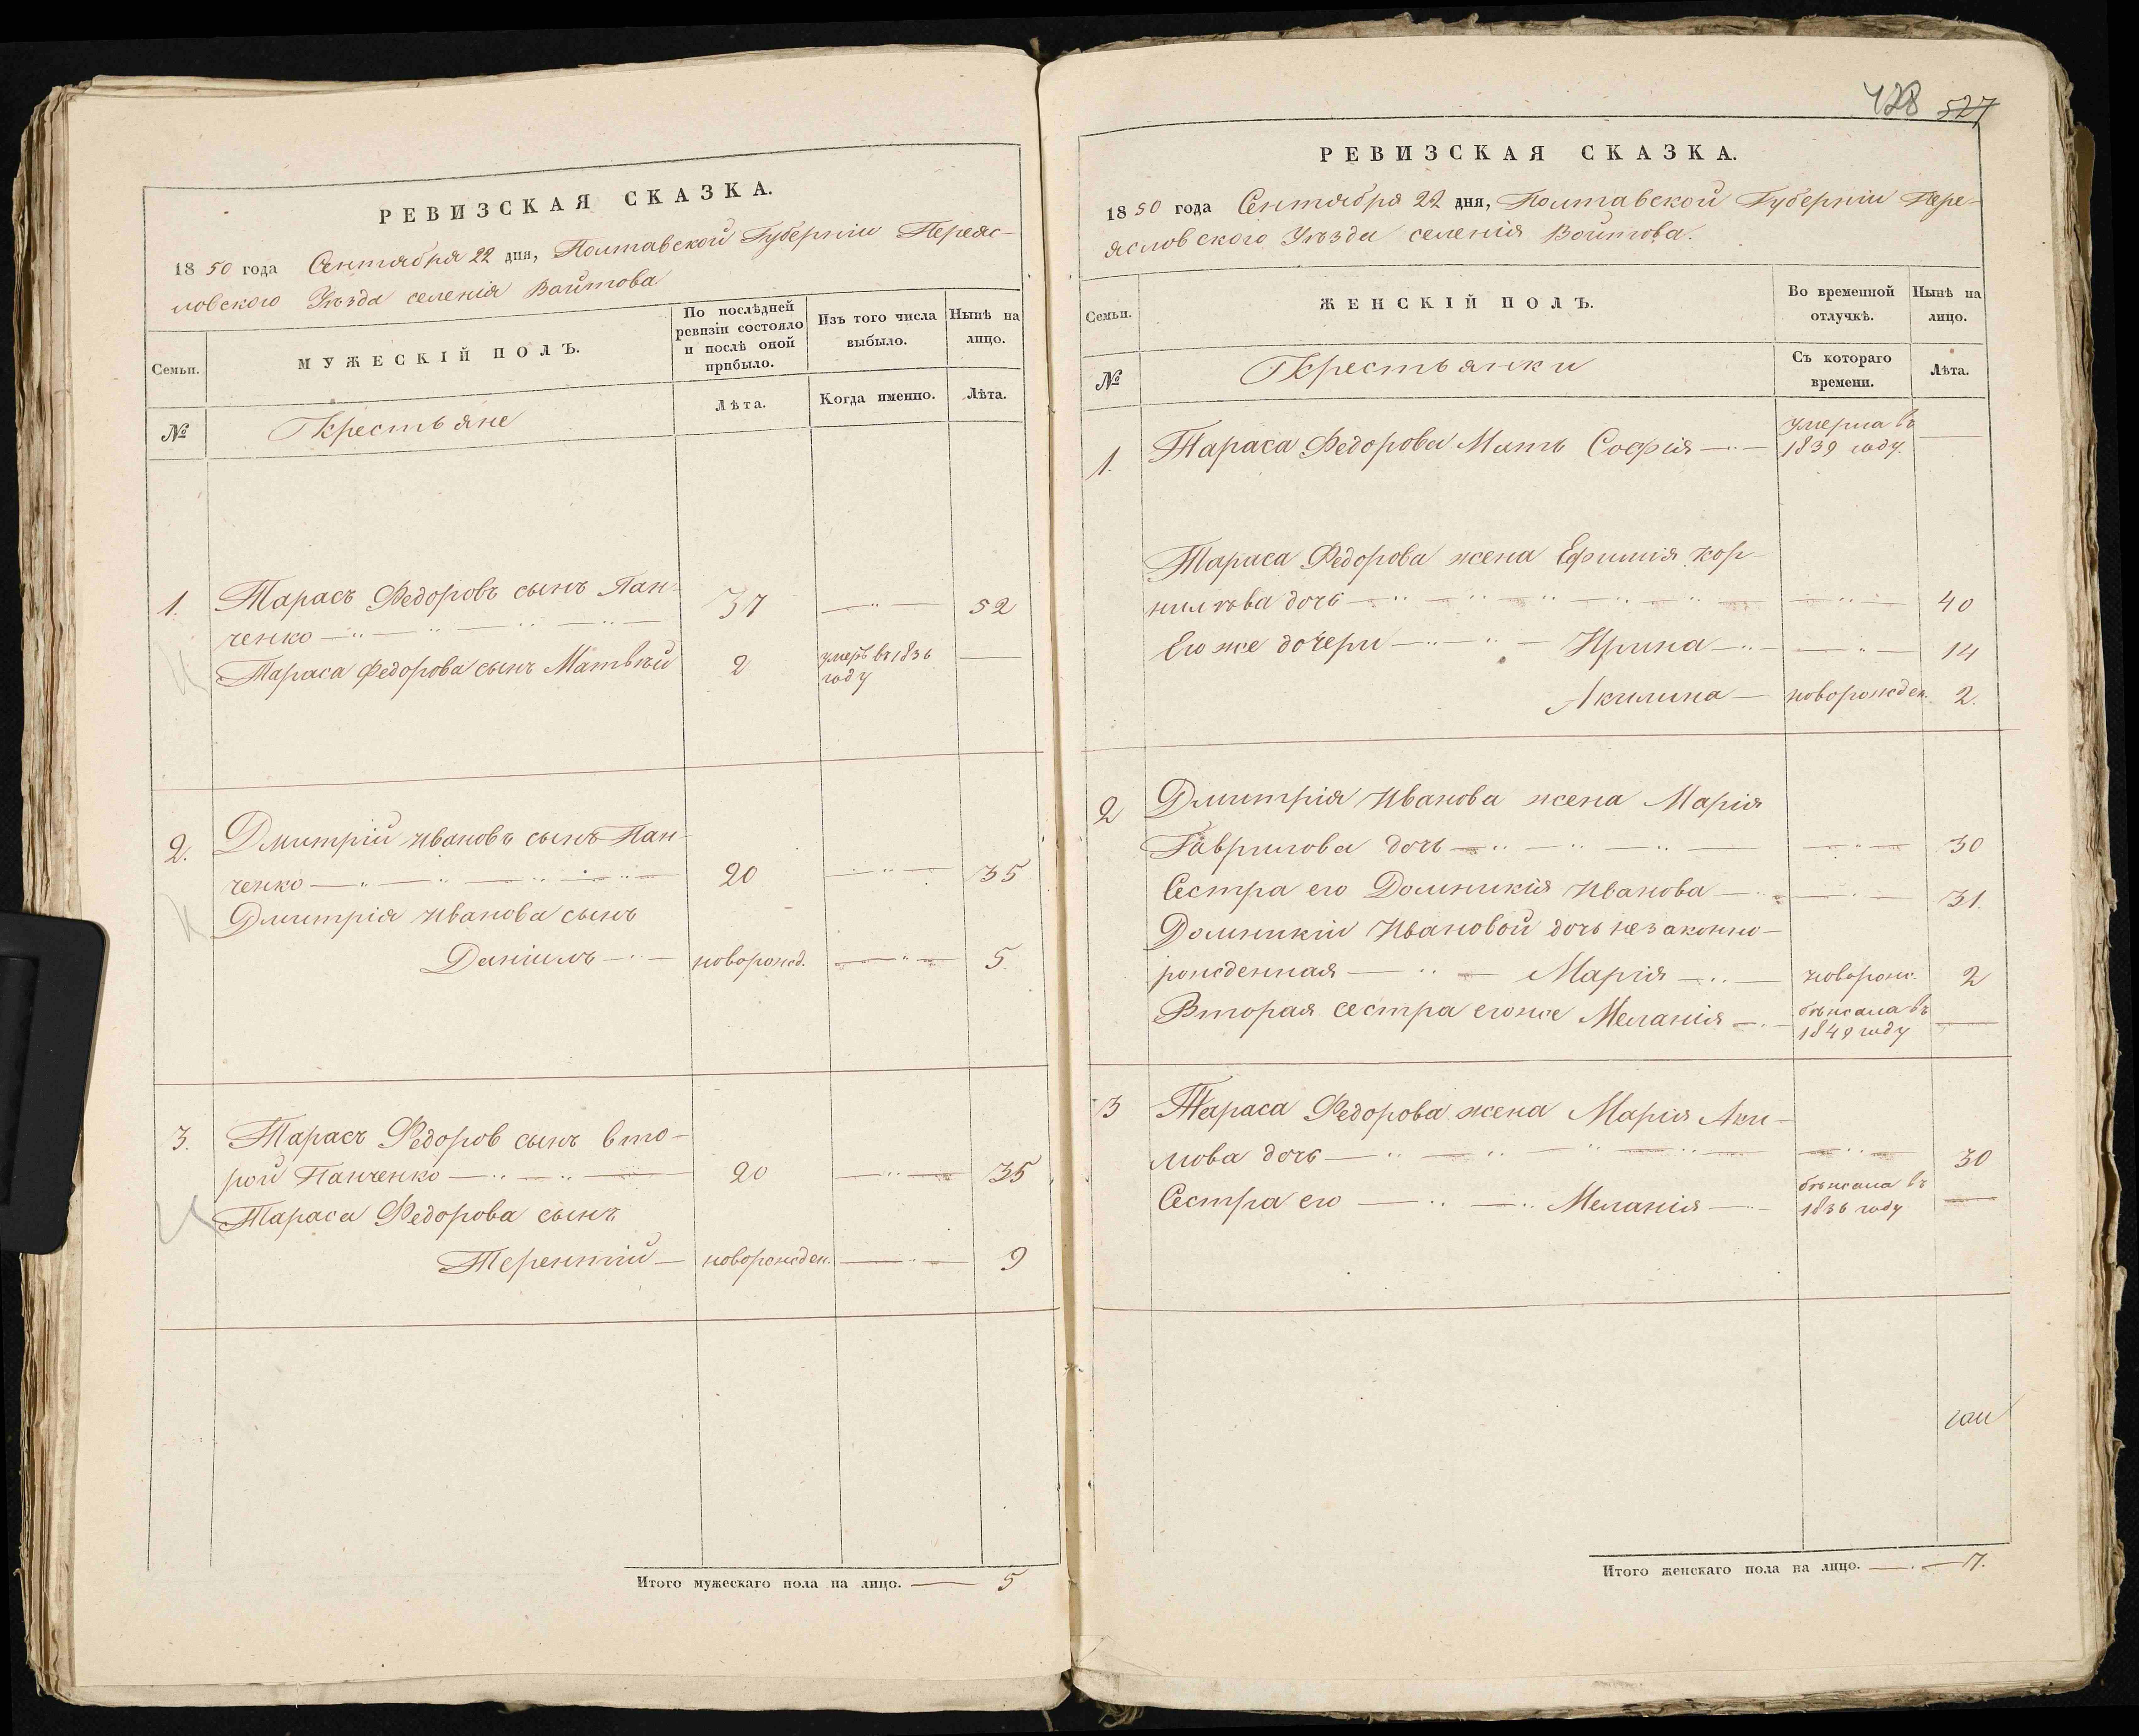 РЕВИЗСКАЯ СКАЗКА.
1850 года Сентября 22 дня, Полтавской Губерніи Переяс-
ловского Уѣзда селенія Войтова
Семьи.
МУЖЕСКІЙ ПОЛЪ.
По послѣдней ревизіи состояло и послѣ оной прибыло.
Изъ того числа выбыло.
Нынѣ на лицо.
№
Крестьяне
Лѣта.
Когда именно.
Лѣта.
1. Тарасъ Федоровъ сынъ Пан-
ченко 37 52
Тараса Федорова сынъ Матвѣй 2 умеръ въ 1836 году
2. Дмитрій Ивановъ сынъ Пан-
ченко 20 35
Дмитрія Иванова сынъ
Даніилъ новорожд. 5.
3. Тарасъ Федоров сынъ вто-
рой Панченко 20 35
Тараса Федорова сынъ
Терентій новорожден. 9
Итого мужескаго пола на лицо. 5
428 527
РЕВИЗСКАЯ СКАЗКА.
1850 года Сентября 22 дня, Полтавской Губерніи Пере-
ясловского Уѣзда селенія Войтова.
Семьи.
ЖЕНСКІЙ ПОЛЪ.
Во временной отлучкѣ.
Нынѣ на лицо.
№
Крестьянки
Съ котораго времени.
Лѣта.
1. Тараса Федорова Мать Софія умерла въ 1839 году.
Тараса Федорова жена Ефимія Кор-
нилѣва дочь 40
Его же дочери Ирина 14
Акилина новорожден. 2.
2 Дмитрія Иванова жена Марія
Гаврилова дочь 30
Сестра его Домникія Иванова 31.
Домникіи Ивановой дочь незаконно-
рожденная Марія новорож. 2
Вторая сестра егоже Меланія бѣжала въ 1849 году
3 Тараса Федорова жена Марія Аки-
мова дочь 30
Сестра его Меланія бѣжала въ 1836 году
Итого женскаго пола на лицо. 7.